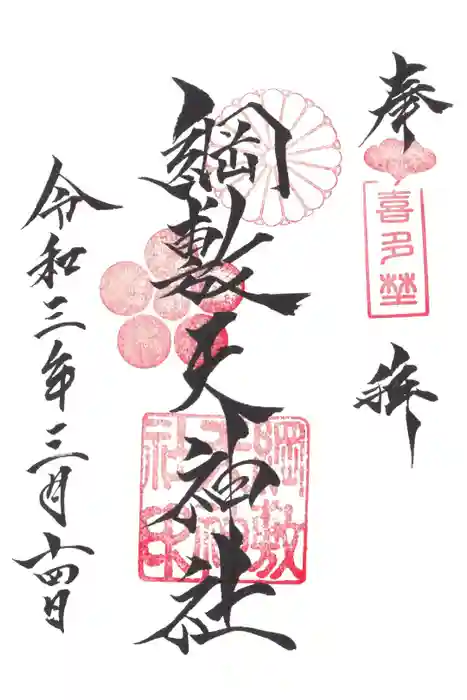 奉拝
喜多埜
綱敷天神社
綱敷
天神
社
令和三年三月十四日